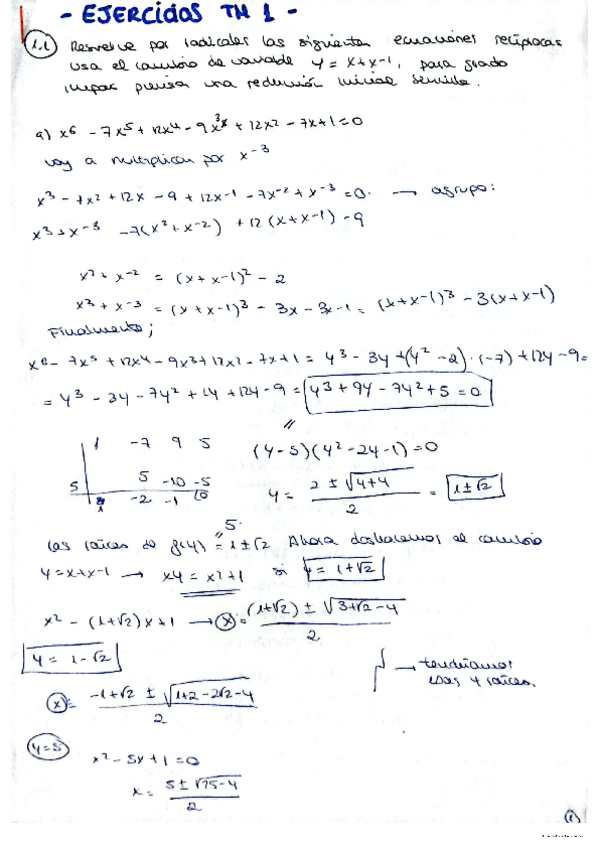 - EJERCICIOS TM 1 -
1.1 Resuelve por radicales las siguientes ecuaciones recíprocas
usa el cambio de variable y = x+x-1, para grado
impar precisa una reducción inicial sencilla.
a) x6 - 7x5 + 12x4 - 9x3 + 12x2 - 7x + 1 = 0
voy a multiplicar por x-3
x3 - 7x2 + 12x - 9 + 12x-1 - 7x-2 + x-3 = 0. → agrupo:
x3 + x-3 - 7(x2 + x-2) + 12(x + x-1) - 9
x2 + x-2 = (x + x-1)2 - 2
x3 + x-3 = (x + x-1)3 - 3x - 3x-1 = (x + x-1)3 - 3(x + x-1)
Finalmente;
x6 - 7x5 + 12x4 - 9x3 + 12x2 - 7x + 1 = y3 - 3y + (y2 - 2)·(-7) + 12y - 9 =
= y3 - 3y - 7y2 + 14 + 12y - 9 = y3 + 9y - 7y2 + 5 = 0
//
1 -7 9 5
5 5 -10 -5
1 -2 -1 0
(y-5)(y2 - 2y - 1) = 0
y = 2 ± √4+4 / 2 = 1 ± √2
5.
las raíces de g(y) = 1 ± √2 Ahora deshacemos el cambio
y = x + x-1 → xy = x2 + 1 si y = 1 + √2
x2 - (1+√2)x + 1 → x = (1+√2) ± √3+√2-4 / 2
y = 1 - √2
x = -1+√2 ± √1+2-2√2-4 / 2
→ tendríamos
las 4 raíces.
y = 5
x2 - 5x + 1 = 0
x = 5 ± √25-4 / 2
1